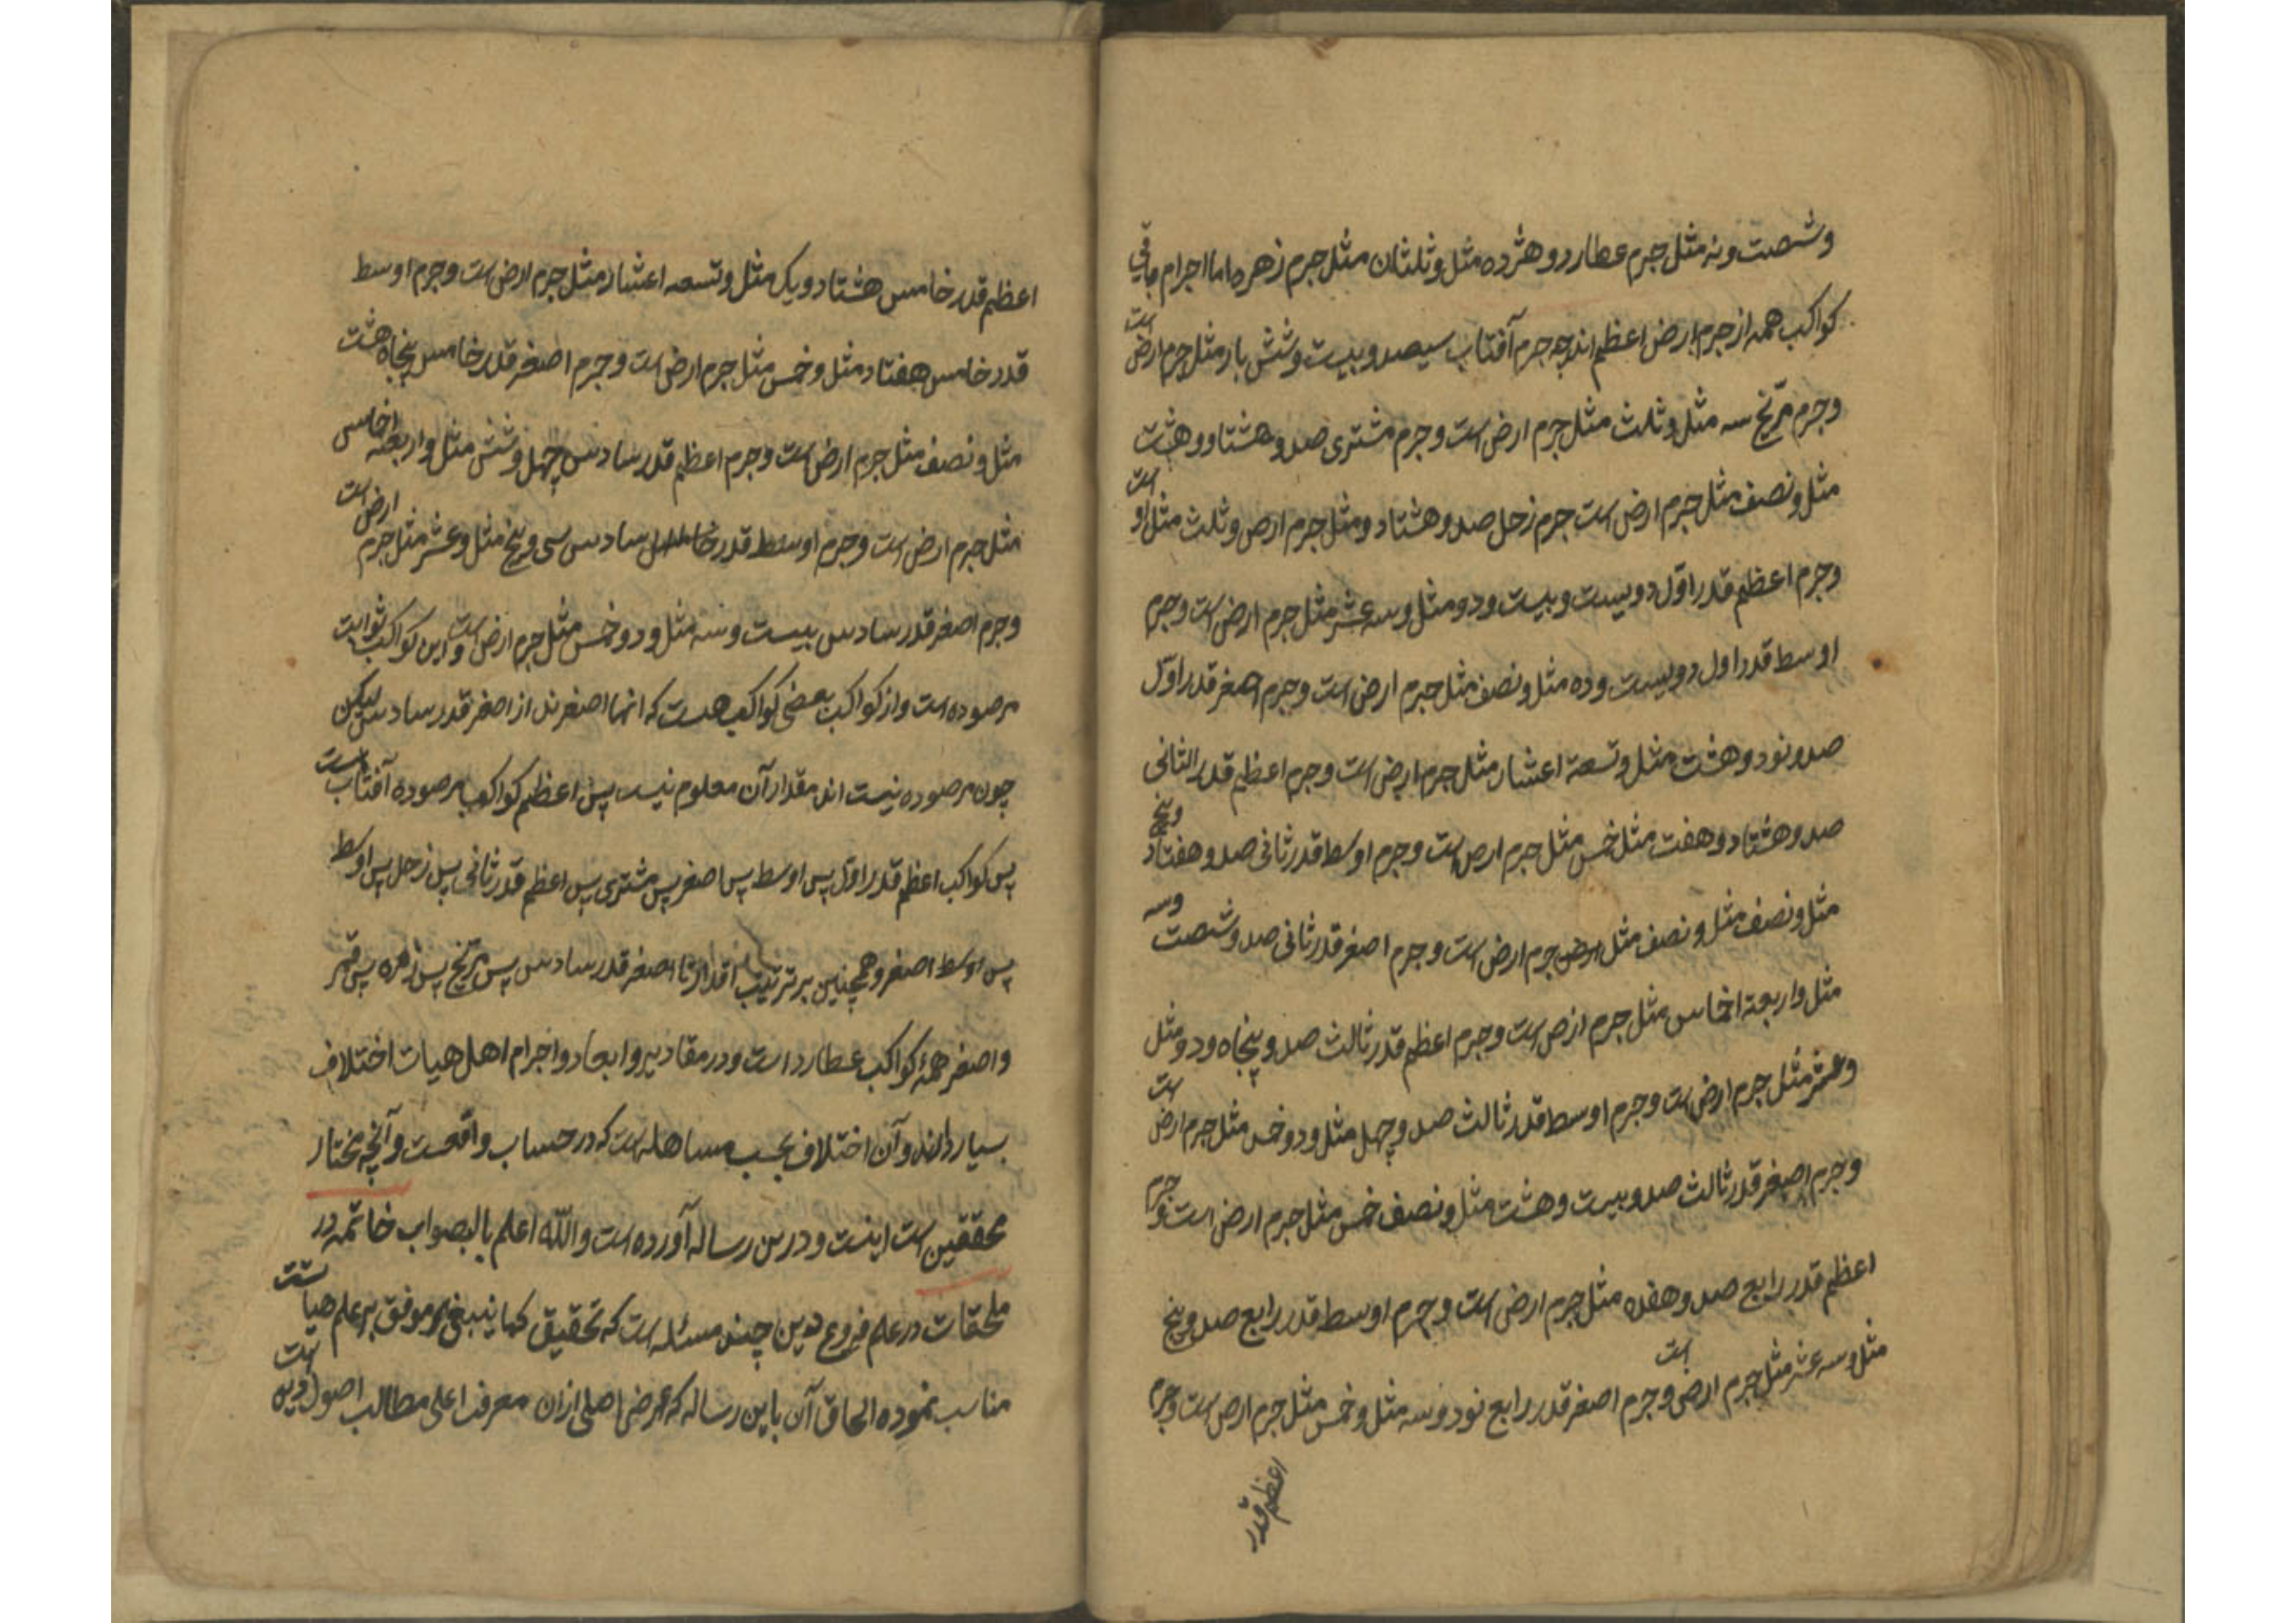 وشصت ونه مثل جرم عطارد و هژده مثل و ثلثان مثل جرم زهره اما اجرام باقی
کواکب همه از جرم ارض اعظم اند چه جرم آفتاب سیصد و بیست و شش بار مثل جرم ارض است
وجرم مریخ سه مثل و ثلث مثل جرم ارض است و جرم مشتری صد و هشتاد و هشت
مثل و نصف مثل جرم ارض است جرم زحل صد و هشتاد و دو مثل جرم ارض و ثلث مثل او است
وجرم اعظم قدر اول دویست و بیست و دو مثل و سه عشر مثل جرم ارض است و جرم
اوسط قدر اول دویست و ده مثل و نصف مثل جرم ارض است و جرم اصغر قدر اول
صد و نود و هشت مثل و تسعة اعشار مثل جرم ارض است و جرم اعظم قدر الثانی
صد و هشتاد و هفت مثل خمس مثل جرم ارض است و جرم اوسط قدر ثانی صد و هفتاد و پنج
مثل و نصف مثل و نصف مثل ارض جرم ارض است و جرم اصغر قدر ثانی صد و شصت وسه
مثل و اربعة اخماس مثل جرم ارض است و جرم اعظم قدر ثالث صد و پنجاه و دو مثل
وعشر مثل جرم ارض است و جرم اوسط قدر ثالث صد و چهل مثل و دو خمس مثل جرم ارض است
وجرم اصغر قدر ثالث صد و بیست و هشت مثل و نصف خمس مثل جرم ارض است و جرم
اعظم قدر رابع صد و هفده مثل جرم ارض است و جرم اوسط قدر رابع صد و پنج
مثل و سه عشر مثل جرم ارض است و جرم اصغر قدر رابع نود و سه مثل و خمس مثل جرم ارض است وجرم
اعظم قدر
اعظم قدر خامس هشتاد و یک مثل و تسعه اعشار مثل جرم ارض است و جرم اوسط
قدر خامس هفتاد مثل و خمس مثل جرم ارض است و جرم اصغر قدر خامس پنجاه هشت
مثل و نصف مثل جرم ارض است و جرم اعظم قدر سادس چهل و شش مثل و اربعه اخماس
مثل جرم ارض است و جرم اوسط قدر سادس سی و پنج مثل و عشر مثل جرم ارض است
وجرم اصغر قدر سادس بیست و سه مثل و دو خمس مثل جرم ارض است و این کواکب ثوابت
مرصوده است و از کواکب بعضی کواکب هست که انها اصغرند از اصغر قدر سادس لیکن
چون مرصوده نیست اند مقدار آن معلوم نیست پس اعظم کواکب مرصوده آفتاب است
پس کواکب اعظم قدر اول پس اوسط پس اصغر پس مشتری پس اعظم قدر ثانی پس زحل پس اوسط
پس اوسط اصغر و همچنین بر ترتیب اقدار تا اصغر قدر سادس پس مریخ پس زهره پس قمر
واصغر همۀ کواکب عطارد است و در مقادیر و ابعاد و اجرام اهل هیات اختلاف
بسیار دارند و آن اختلاف بحسب مساهله است که در حساب واقعست و آنچه مختار
محققین است اینست و درین رساله آورده است والله اعلم بالصواب خاتمه در
ملحقات در علم فروع دین چند مسئله است که تحقیق کما ینبغی موقوف بر علم هیات است
مناسب نموده الحاق آن باین رساله که غرض اصلی ازان معرفت اعلی مطالب اصول دینیه است